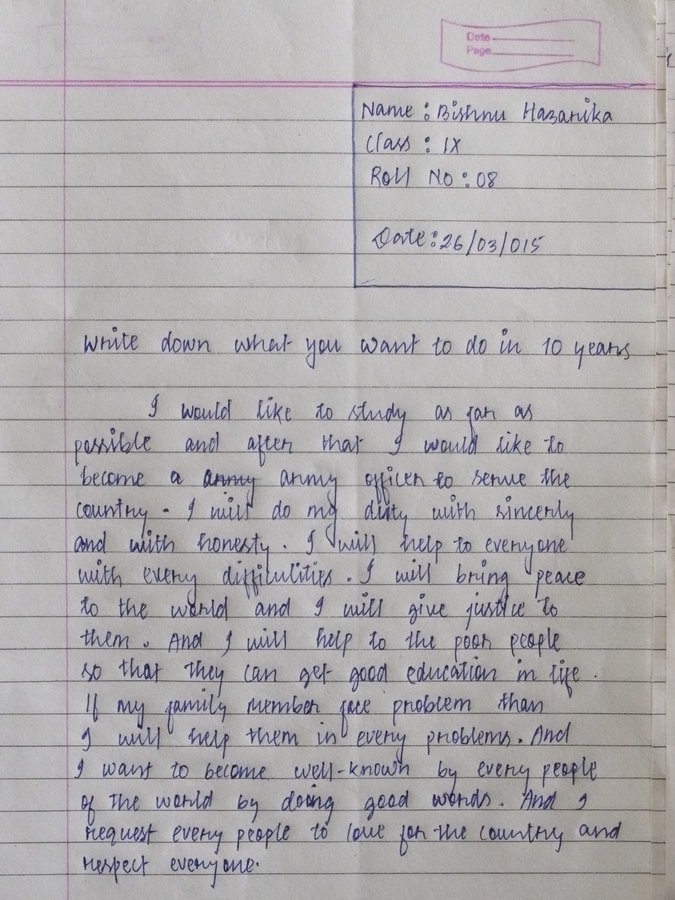 Date
Page
Name : Bishnu Hazarika
Class : IX
Roll No : 08
Date : 26/03/015
Write down what you want to do in 10 years
I would like to study as far as
possible and after that I would like to
become a army army officer to serve the
country. I will do my duty with sincerly
and with honesty. I will help to everyone
with every difficulities. I will bring peace
to the world and I will give justice to
them. And I will help to the poor people
so that they can get good education in life.
If my family member face problem than
I will help them in every problems. And
I want to become well-known by every people
of the world by doing good words. And I
request every people to love for the country and
respect everyone.